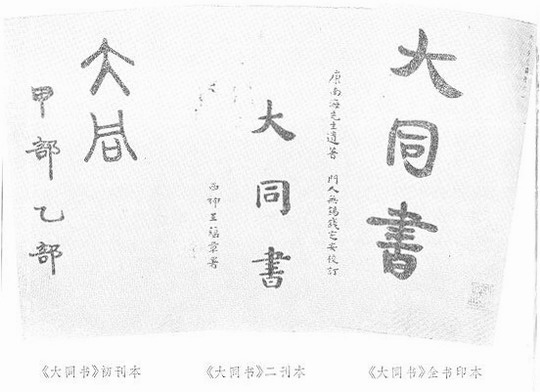 大同書
康南海先生遺著 門人無錫錢定安校訂
大同書
西神王蘊章署
大同
甲部乙部
《大同书》初刊本
《大同书》二刊本
《大同书》全书印本